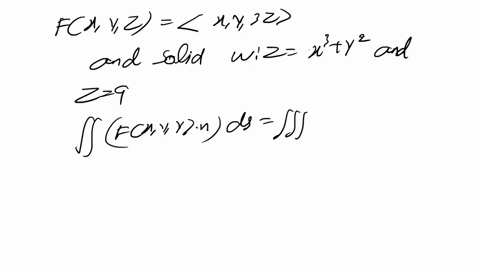 F(x, y, z) = < x, y, 3z>
and solid w: z = x³ + y² and
z = 9
∬ (F(x, y, y).n) ds = ∭